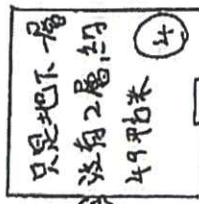 只是地下一層
沒有2層,約
49平方米
④